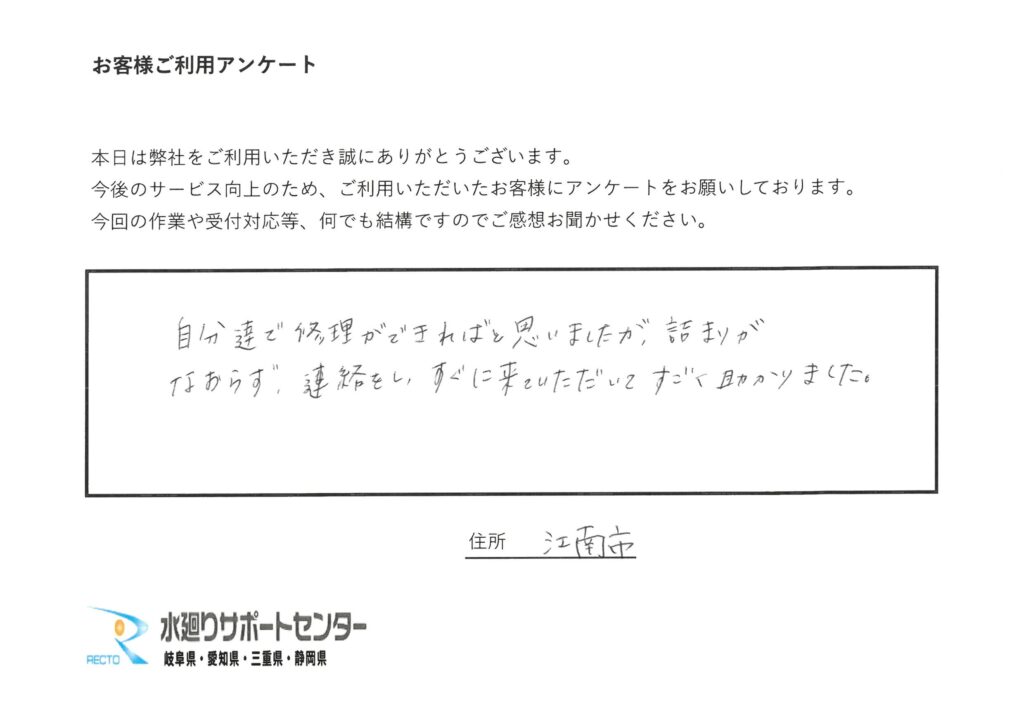 お客様ご利用アンケート
本日は弊社をご利用いただき誠にありがとうございます。
今後のサービス向上のため、ご利用いただいたお客様にアンケートをお願いしております。
今回の作業や受付対応等、何でも結構ですのでご感想お聞かせください。
自分達で修理ができればと思いましたが、詰まりが
なおらず、連絡をし、すぐに来ていただいてすごく助かりました。
住所 江南市
水廻りサポートセンター
RECTO 岐阜県・愛知県・三重県・静岡県